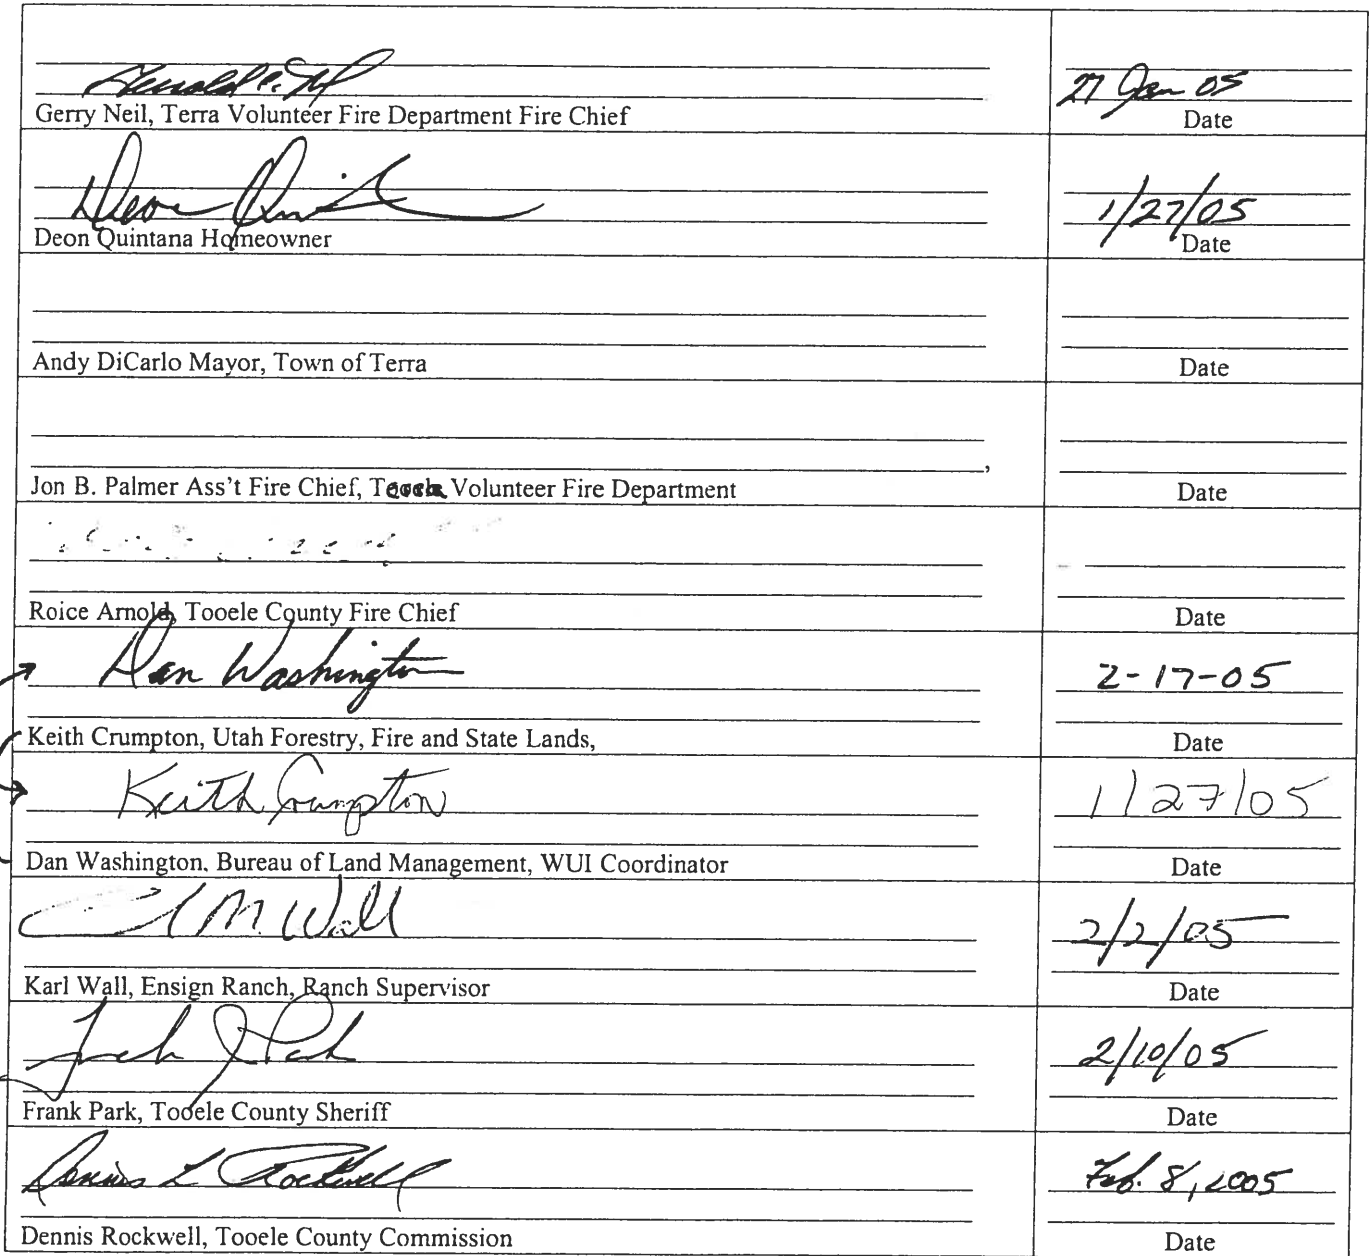 27 Jan 05
Gerry Neil, Terra Volunteer Fire Department Fire Chief
Date
Deon Quintana
1/27/05
Deon Quintana Homeowner
Date
Andy DiCarlo Mayor, Town of Terra
Date
,
Jon B. Palmer Ass't Fire Chief, Volunteer Fire Department
Date
Roice Arnold, Tooele County Fire Chief
Date
Dan Washington
2-17-05
Keith Crumpton, Utah Forestry, Fire and State Lands,
Date
Keith Crumpton
1/27/05
Dan Washington, Bureau of Land Management, WUI Coordinator
Date
M. Wall
2/2/05
Karl Wall, Ensign Ranch, Ranch Supervisor
Date
Frank J Park
2/10/05
Frank Park, Tooele County Sheriff
Date
Dennis L Rockwell
Feb. 8, 2005
Dennis Rockwell, Tooele County Commission
Date